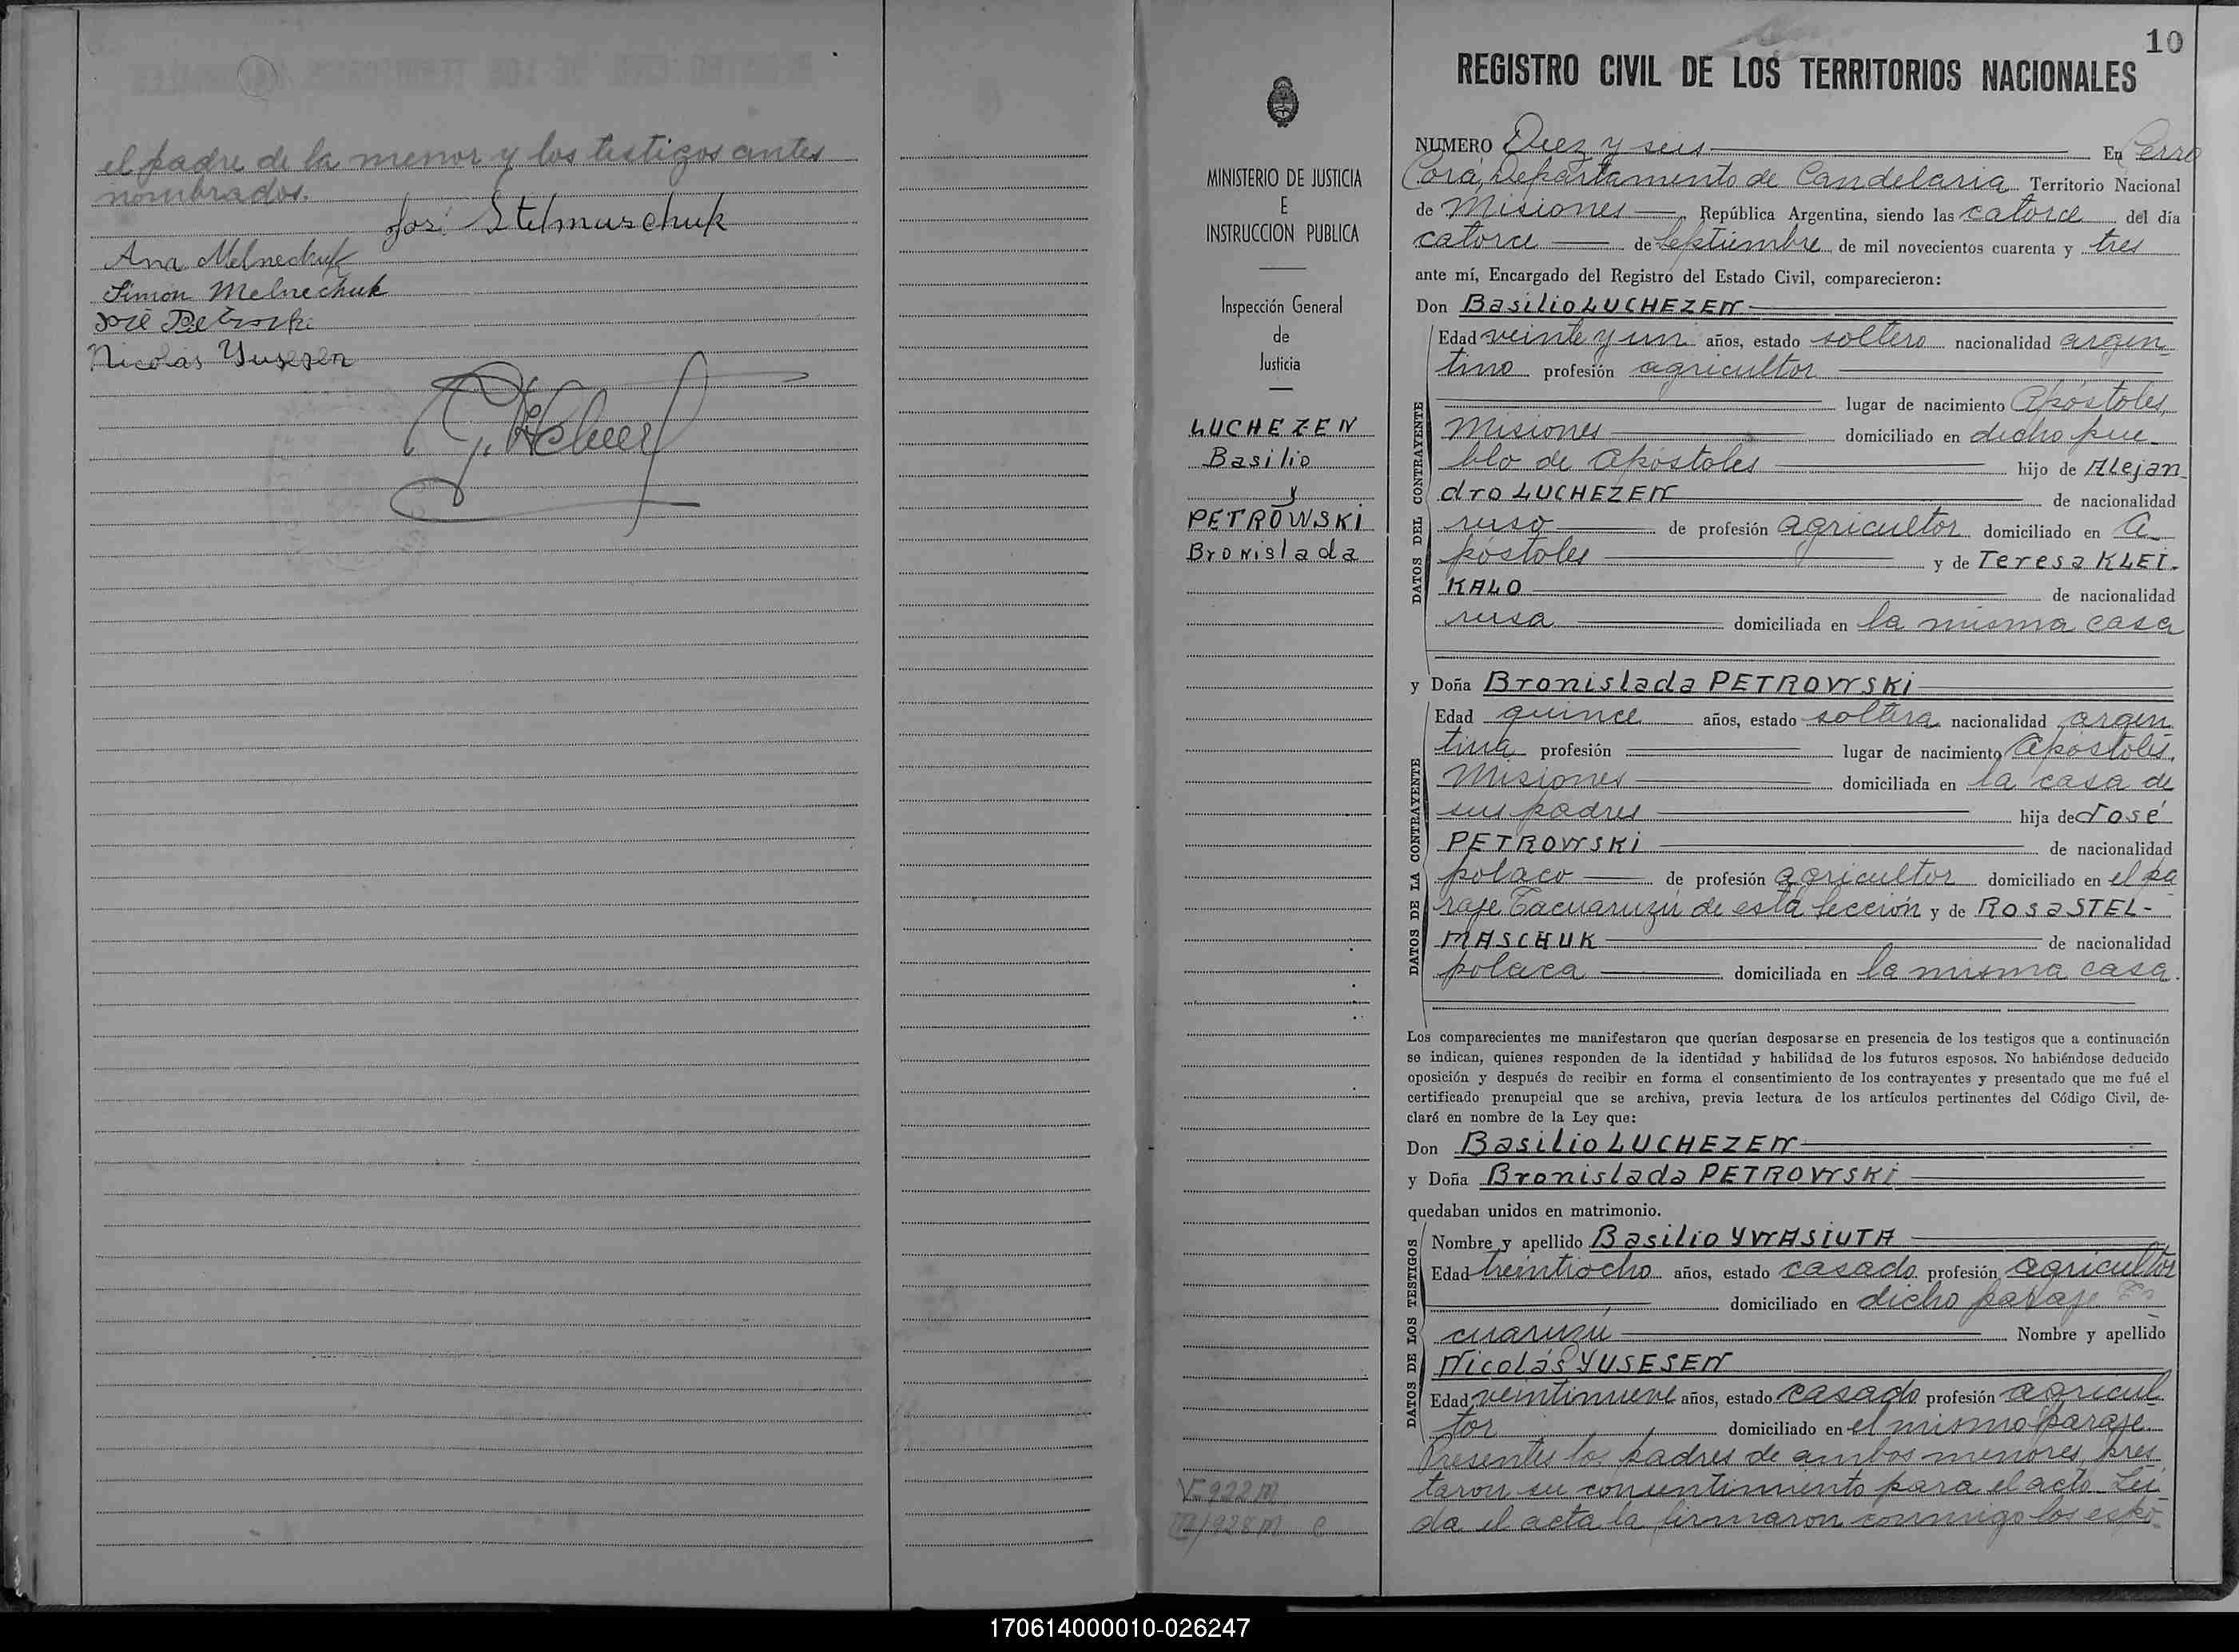 el padre de la menor y los testigos antes
nombrados.
José Stelmaschuk
Ana Melnechuk
Simón Melnechuk
José Petroski
Nicolas Yusesen
MINISTERIO DE JUSTICIA
E
INSTRUCCION PUBLICA
Inspección General
de
Justicia
LUCHEZEN
Basilio
y
PETROWSKI
Bronislada
V-922 M
10
REGISTRO CIVIL DE LOS TERRITORIOS NACIONALES
NUMERO Diez y seis En Cerro
Corá, Departamento de Candelaria Territorio Nacional
de Misiones, República Argentina, siendo las catorce del día
catorce de Septiembre de mil novecientos cuarenta y tres
ante mí, Encargado del Registro del Estado Civil, comparecieron:
Don Basilio LUCHEZEN
DATOS DEL CONTRAYENTE
Edad veinte y un años, estado soltero nacionalidad argen-
tino profesión agricultor
lugar de nacimiento Apóstoles,
Misiones domiciliado en dicho pue-
blo de Apóstoles hijo de Alejan
dro LUCHEZEN de nacionalidad
ruso de profesión agricultor domiciliado en A-
póstoles y de Teresa KLEI-
KALO de nacionalidad
rusa domiciliada en la misma casa
y Doña Bronislada PETROWSKI
DATOS DE LA CONTRAYENTE
Edad quince años, estado soltera nacionalidad argen
tina profesión lugar de nacimiento Apóstoles,
Misiones domiciliada en la casa de
sus padres hija de José
PETROWSKI de nacionalidad
polaco de profesión agricultor domiciliado en el pa
raje Tacuaruzú de esta Sección y de Rosa STEL-
MASCHUK de nacionalidad
polaca domiciliada en la misma casa.
Los comparecientes me manifestaron que querían desposarse en presencia de los testigos que a continuación
se indican, quienes responden de la identidad y habilidad de los futuros esposos. No habiéndose deducido
oposición y después de recibir en forma el consentimiento de los contrayentes y presentado que me fué el
certificado prenupcial que se archiva, previa lectura de los artículos pertinentes del Código Civil, de-
claré en nombre de la Ley que:
Don Basilio LUCHEZEN
y Doña Bronislada PETROWSKI
quedaban unidos en matrimonio.
DATOS DE LOS TESTIGOS
Nombre y apellido Basilio YWASIUTA
Edad treintiocho años, estado casado profesión agricultor
domiciliado en dicho paraje Ta
cuaruzú Nombre y apellido
Nicolás YUSESEN
Edad veintinueve años, estado casado profesión agricul
tor domiciliado en el mismo paraje.
Presentes los padres de ambos menores, pres
taron su consentimiento para el acto. Leí
da el acta la firmaron conmigo los espo-
170614000010-026247